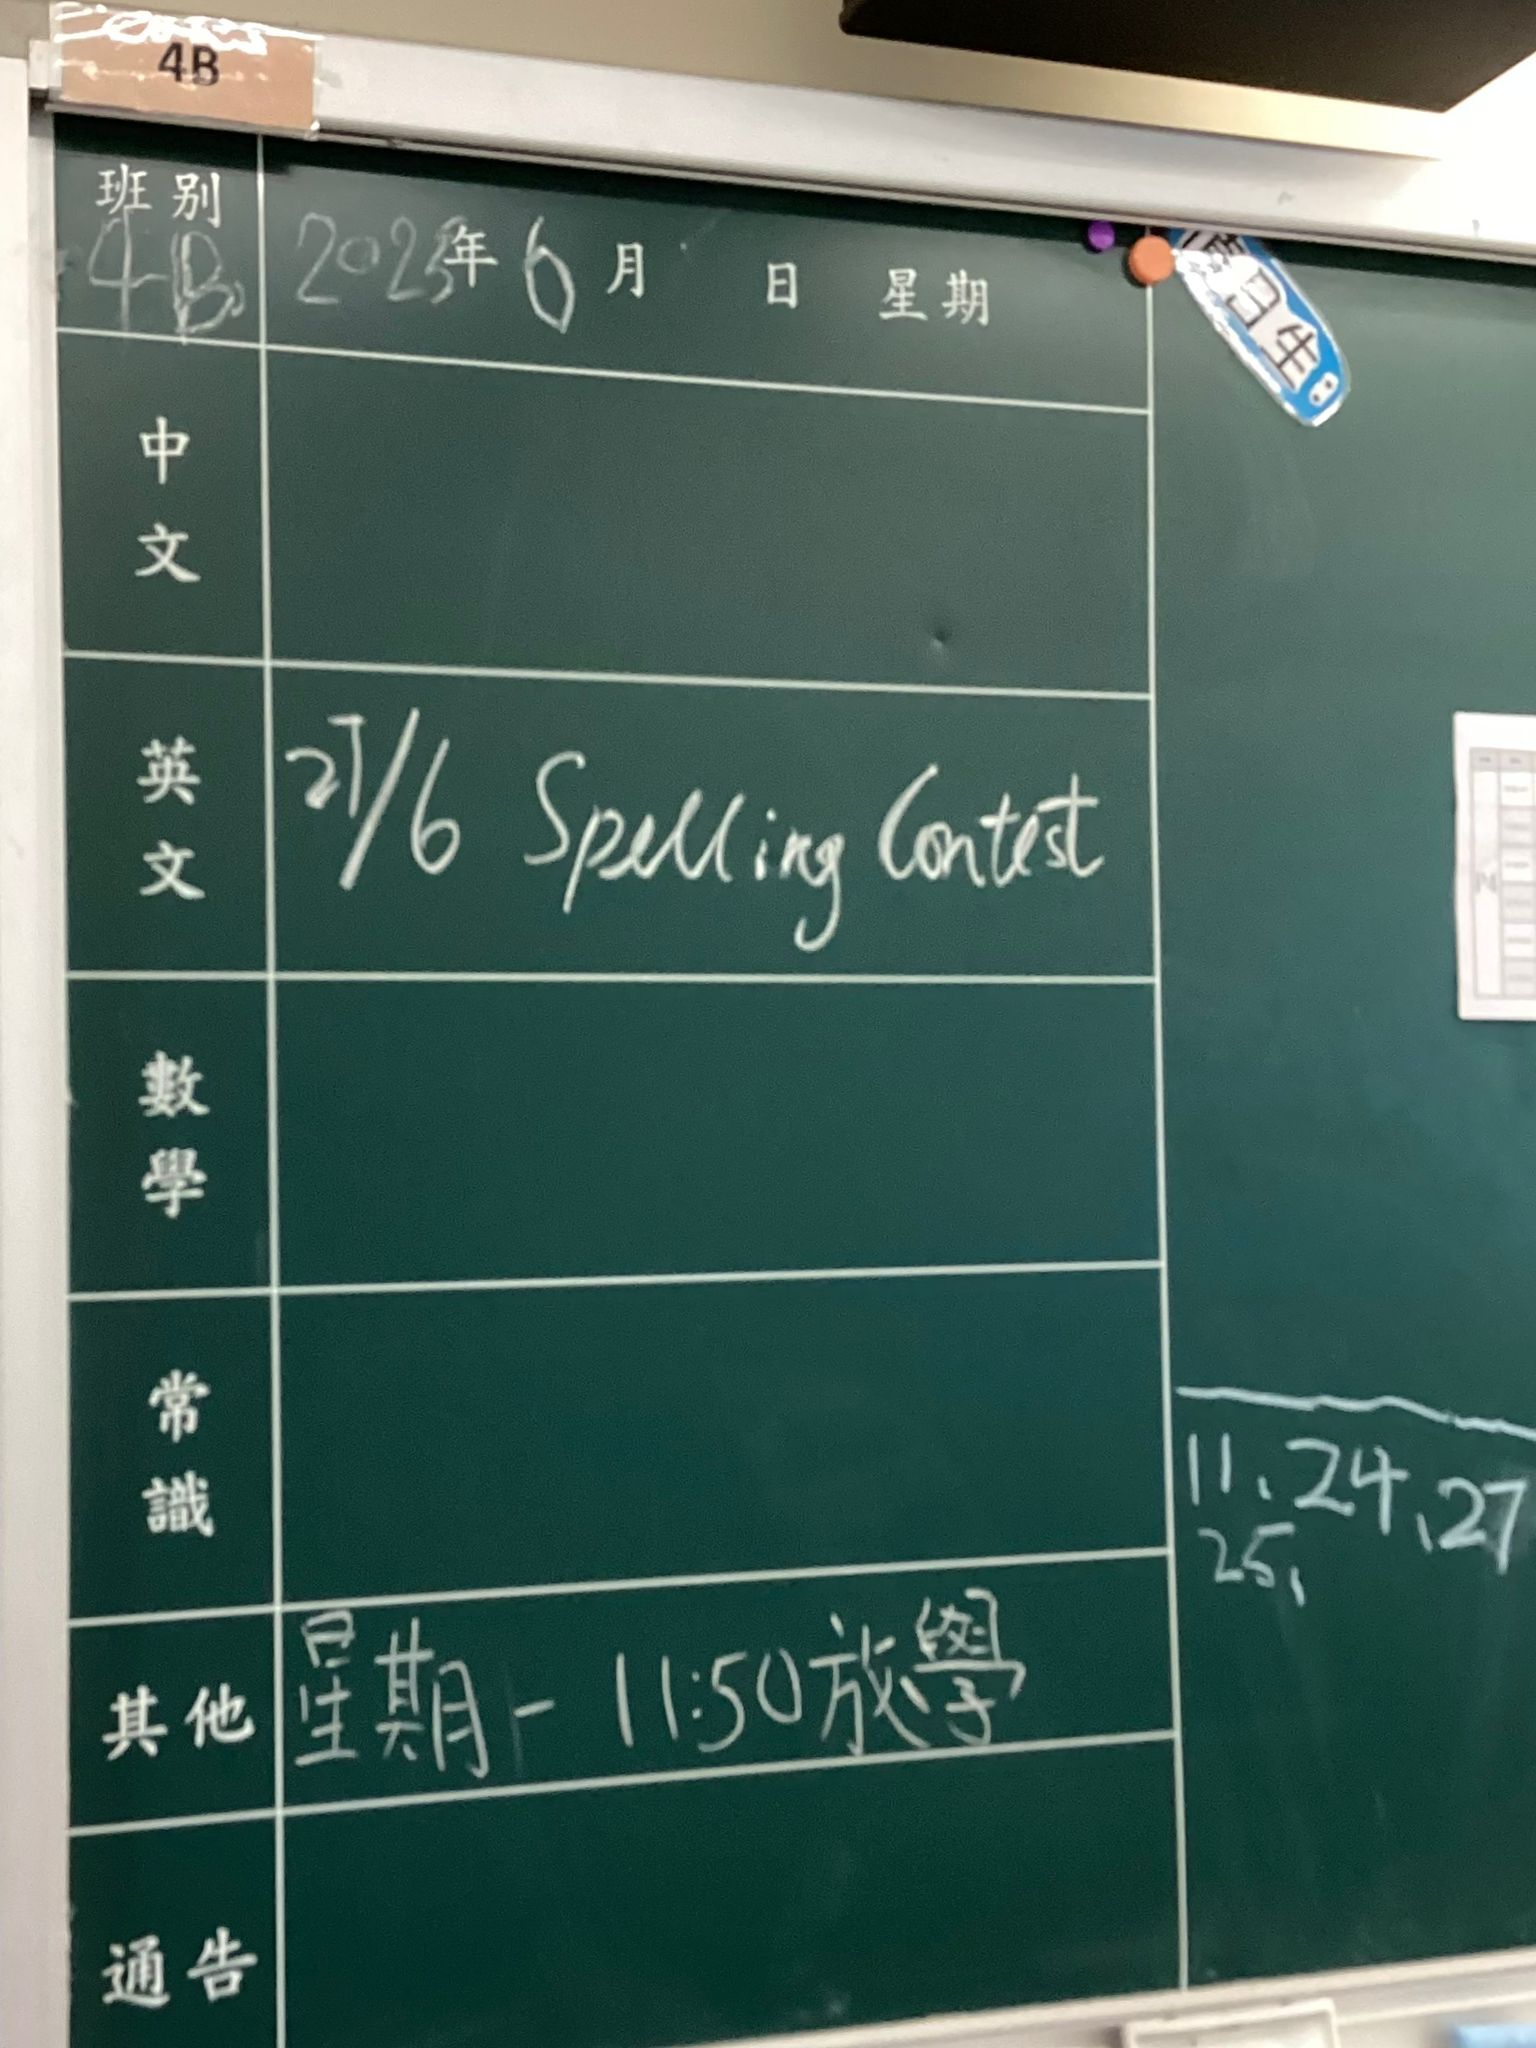 4B
班別
4B
2025年6月 日 星期
值日生
中文
英文
27/6 Spelling Contest
數學
常識
11、24、27
25、
其他
星期一 11:50放學
通告